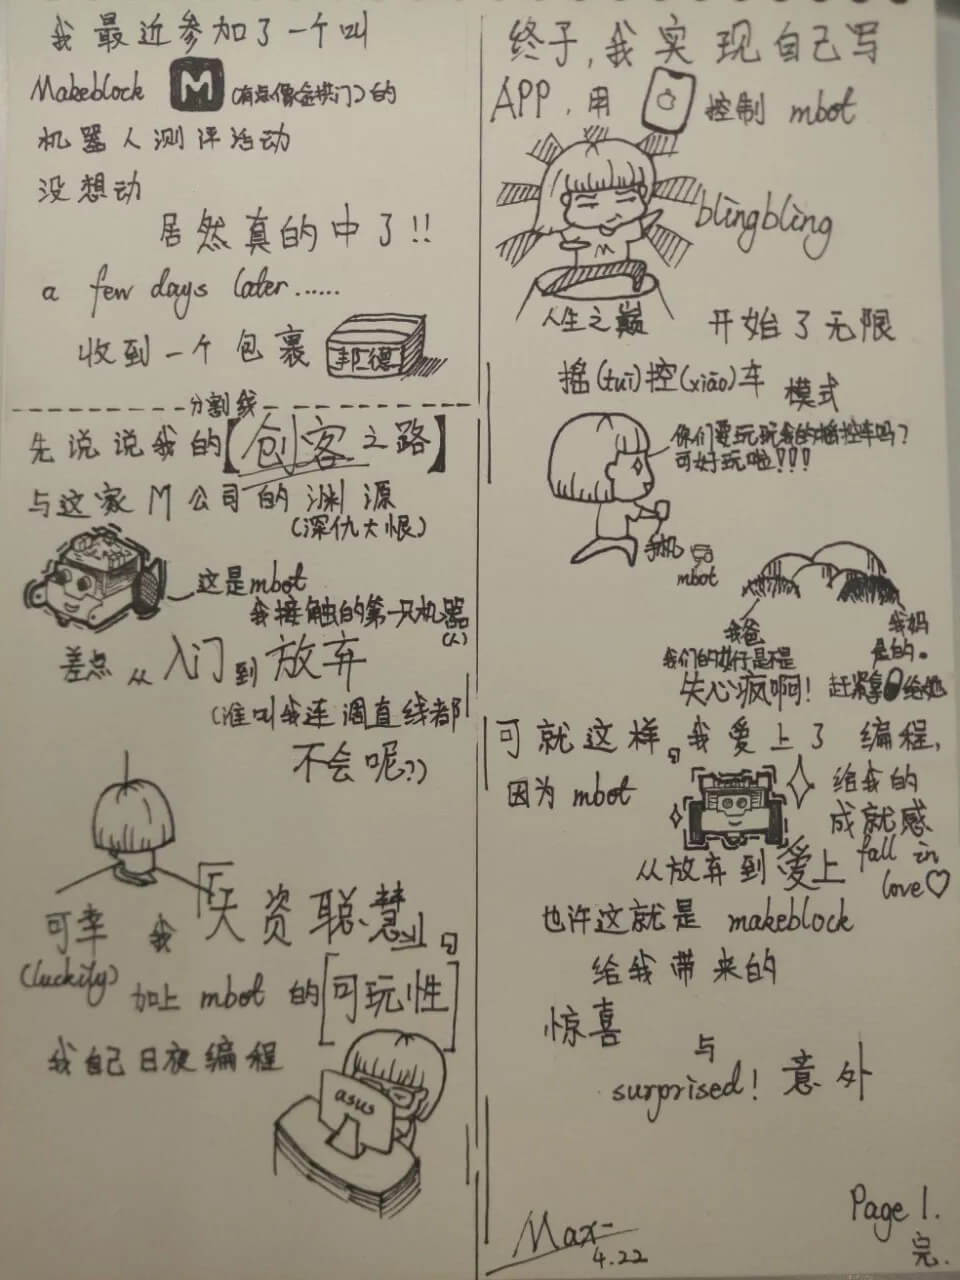 我最近参加了一个叫
Makeblock M (有点像金拱门)的
机器人测评活动
没想动
居然真的中了!!
a few days later......
收到一个包裹
邦德
分割线
先说说我的【创客之路】
与这家M公司的渊源
(深仇大恨)
这是mbot
我接触的第一只机器
(人)
差点从入门到放弃
(谁叫我连调直线都
不会呢??)
可幸我「天资聪慧」。
(luckily)
加上mbot的[可玩性]
我自己日夜编程
asus
终于,我实现自己写
APP,用控制mbot
blingbling
M
人生之巅
开始了无限
摇(tuī)控(xiāo)车模式
你们要玩玩我的摇控车吗?
可好玩啦!!!
手机
mbot
我爸
我们的女仔是不是
失心疯啊!
我妈
是的。
赶紧拿给她
可就这样。我爱上了编程,
因为mbot给我的
成就感
从放弃到爱上
fall in
love♡
也许这就是makeblock
给我带来的
惊喜
与
surprised!意外
Max
4.22
Page 1.
完.